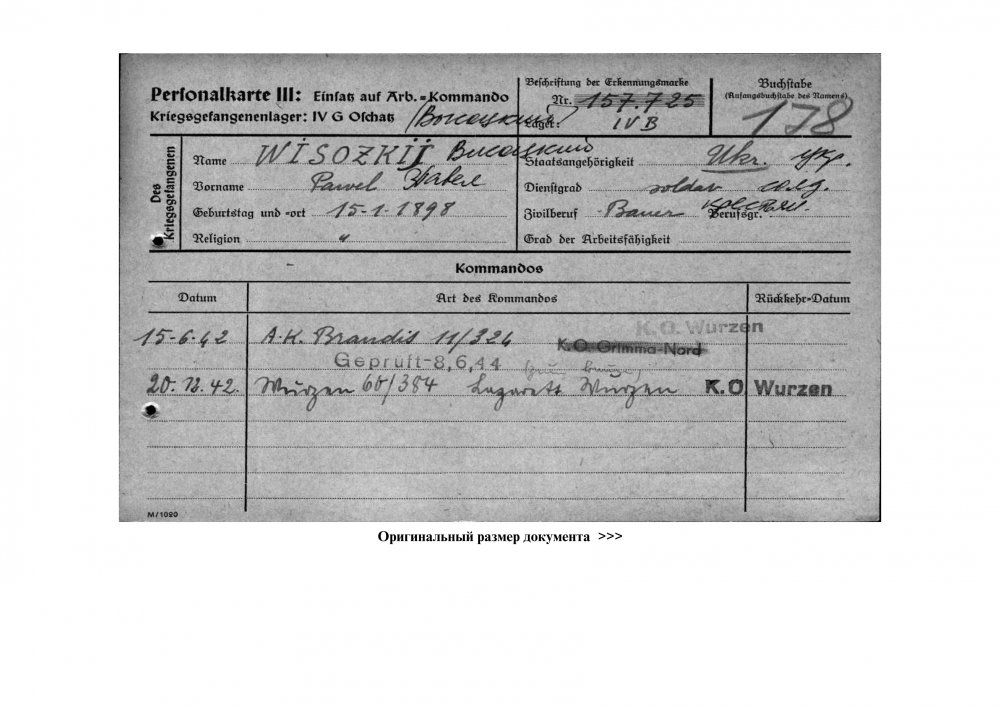 Personalkarte III: Einsatz auf Arb.=Kommando
Kriegsgefangenenlager: IV G Oschatz
Beschriftung der Erkennungsmarke
Nr. 157.725
Lager: IV B
Buchstabe
(Anfangsbuchstabe des Namens)
178
Des Kriegsgefangenen
Name WISOZKIJ Висоцкий
Staatsangehörigkeit Ukr. укр.
Vorname Pawel Павел
Dienstgrad soldat солд.
Geburtstag und =ort 15-1-1898
Zivilberuf Bauer Berufsgr.
Religion
Grad der Arbeitsfähigkeit
Kommandos
Datum Art des Kommandos Rückkehr=Datum
K.O. Wurzen
15-6-42 A.K. Brandis 11/324 K.O. Grimma-Nord
Gepruft-8,6,44
20.12.42. Wurzen 60/384 Lazarett Wurzen K.O Wurzen
M/1020
Оригинальный размер документа >>>